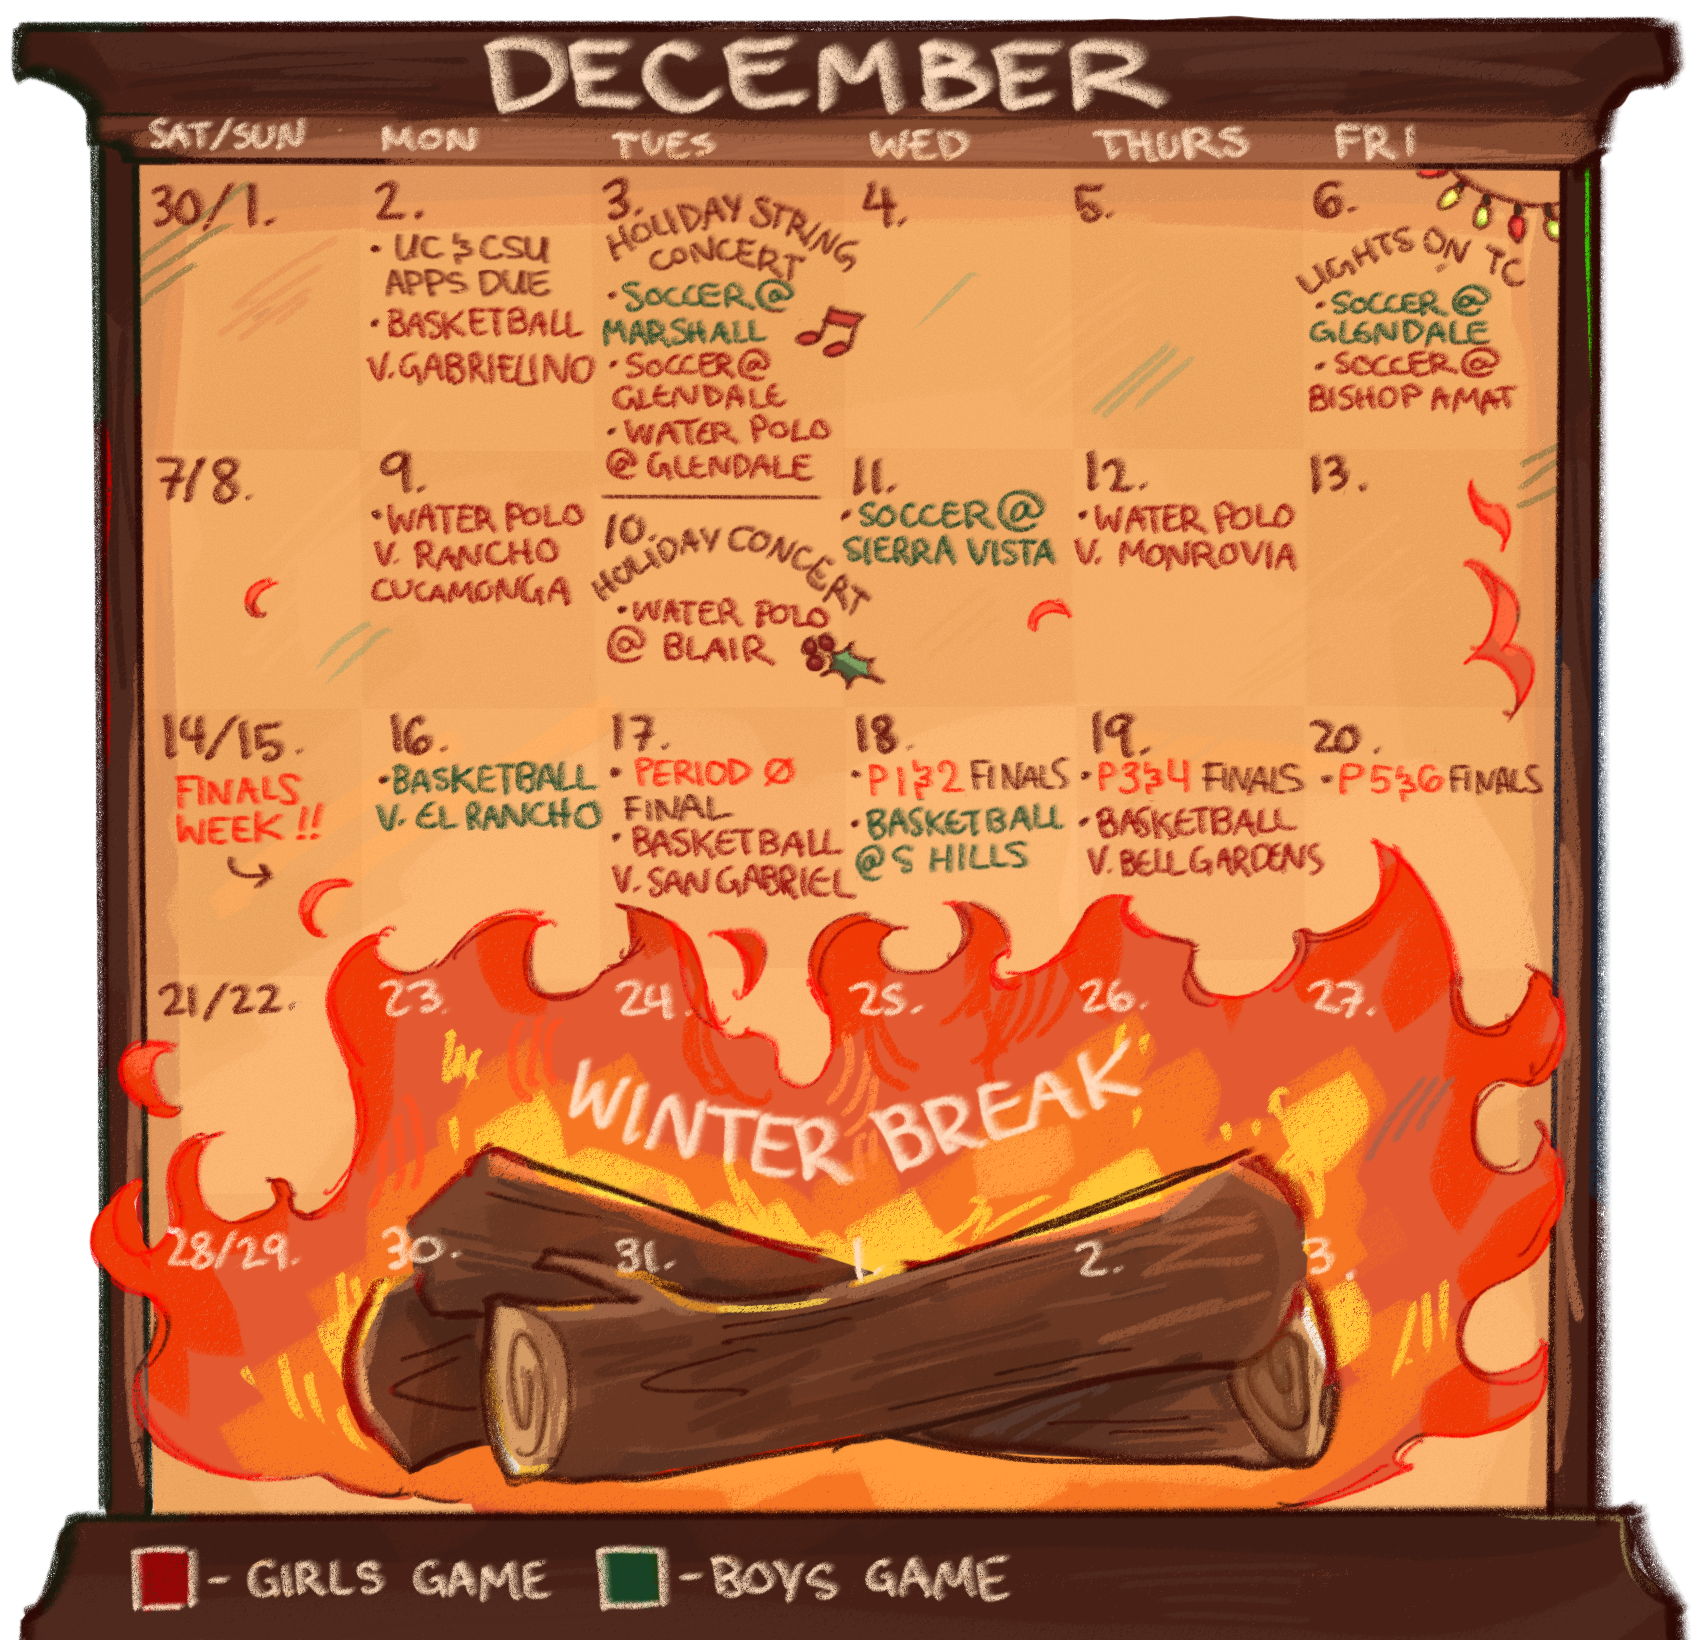 DECEMBER
SAT/SUN MON TUES WED THURS FRI
30/1.
2.
• UC & CSU
APPS DUE
• BASKETBALL
V. GABRIELINO
3.
HOLIDAY STRING
CONCERT
• SOCCER @
MARSHALL
• SOCCER @
GLENDALE
• WATER POLO
@ GLENDALE
4.
5.
6.
LIGHTS ON TC
• SOCCER @
GLENDALE
• SOCCER @
BISHOP AMAT
7/8.
9.
• WATER POLO
V. RANCHO
CUCAMONGA
10.
HOLIDAY CONCERT
• WATER POLO
@ BLAIR
11.
• SOCCER @
SIERRA VISTA
12.
• WATER POLO
V. MONROVIA
13.
14/15.
FINALS
WEEK !!
16.
• BASKETBALL
V. EL RANCHO
17.
• PERIOD Ø
FINAL
• BASKETBALL
V. SAN GABRIEL
18.
• P1&2 FINALS
• BASKETBALL
@ S HILLS
19.
• P3&4 FINALS
• BASKETBALL
V. BELL GARDENS
20.
• P5&6 FINALS
21/22.
23.
24.
25.
26.
27.
WINTER BREAK
28/29.
30.
31.
1.
2.
3.
- GIRLS GAME
- BOYS GAME